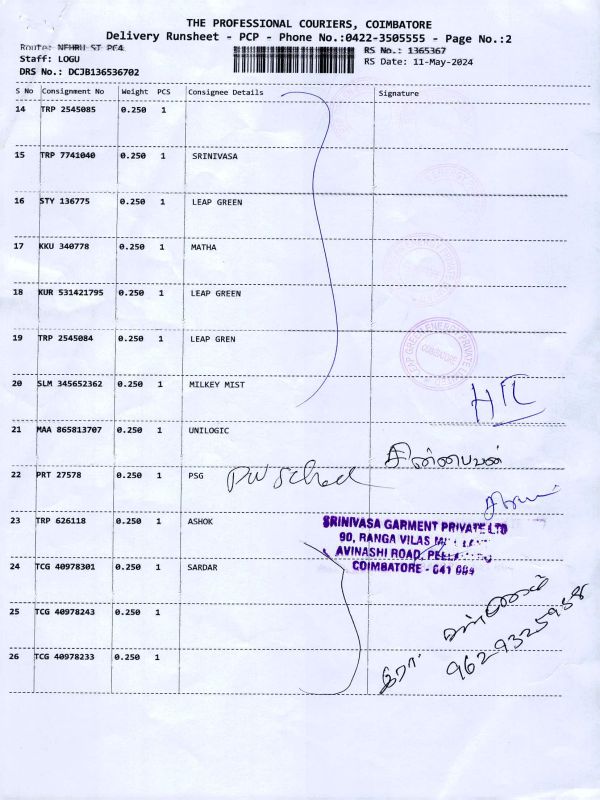 THE PROFESSIONAL COURIERS, COIMBATORE
Delivery Runsheet - PCP - Phone No.:0422-3505555 - Page No.:2
Route: NEHRU ST PC4
RS No.: 1365367
Staff: LOGU
RS Date: 11-May-2024
DRS No.: DCJB136536702
S No Consignment No Weight PCS Consignee Details Signature
14 TRP 2545085 0.250 1
15 TRP 7741040 0.250 1 SRINIVASA
16 STY 136775 0.250 1 LEAP GREEN
17 KKU 340778 0.250 1 MATHA
18 KUR 531421795 0.250 1 LEAP GREEN
19 TRP 2545084 0.250 1 LEAP GREN
COIMBATORE
20 SLM 345652362 0.250 1 MILKEY MIST
21 MAA 865813707 0.250 1 UNILOGIC
சின்னபையன்
22 PRT 27578 0.250 1 PSG
23 TRP 626118 0.250 1 ASHOK
SRINIVASA GARMENT PRIVATE LTD
90, RANGA VILAS
AVINASHI ROAD,
COIMBATORE - 641
24 TCG 40978301 0.250 1 SARDAR
25 TCG 40978243 0.250 1
9629325958
26 TCG 40978233 0.250 1